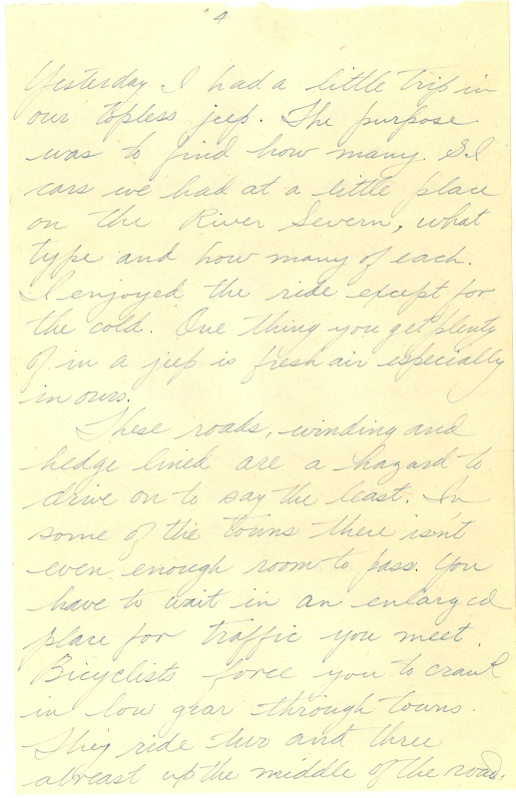 4
Yesterday I had a little trip in
our topless jeep. The purpose
was to find how many G I
cars we had at a little place
on the River Severn, what
type and how many of each.
I enjoyed the ride except for
the cold. One thing you get plenty
of in a jeep is fresh air especially
in ours.
These roads, winding and
hedge lined are a hazard to
drive on to say the least. In
some of the towns there isn't
even enough room to pass. You
have to wait in an enlarged
place for traffic you meet.
Bicyclists force you to crawl
in low gear through towns.
They ride two and three
abreast up the middle of the road.